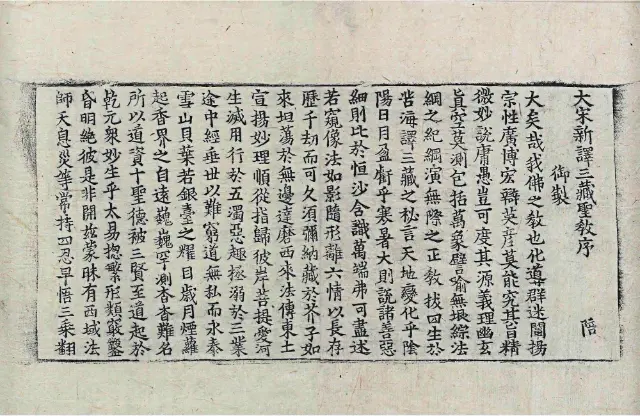 大宋新譯三藏聖教序　陪
御製
大矣哉我佛之教也化導群迷闡揚
宗性廣博宏辯英彦莫能究其旨精
微妙說庸愚豈可度其源義理幽玄
真空莫測包括萬象譬喻無垠綜法
綱之紀綱演無際之正教拔四生於
苦海譯三藏之秘言天地變化乎陰
陽日月盈虧乎寒暑大則說諸善惡
細則比於恒沙含識萬端弗可盡述
若窺像法如影隨形離六情以長存
歷千劫而可久須彌納藏於芥子如
來坦蕩於無邊達磨西來法傳東土
宣揚妙理順從指歸彼岸菩提愛河
生滅用行於五濁惡趣拯溺於三業
途中經垂世以難窮道無私而永泰
雪山貝葉若銀臺之耀目歲月煙蘿
起香界之自遠巍巍罕測杳杳難名
所以道資十聖德被三賢至道起於
乾元衆妙生乎太易揔繁形類竅鑿
昏明絶彼是非開兹蒙昧有西域法
師天息災等常持四忍早悟三乘翻